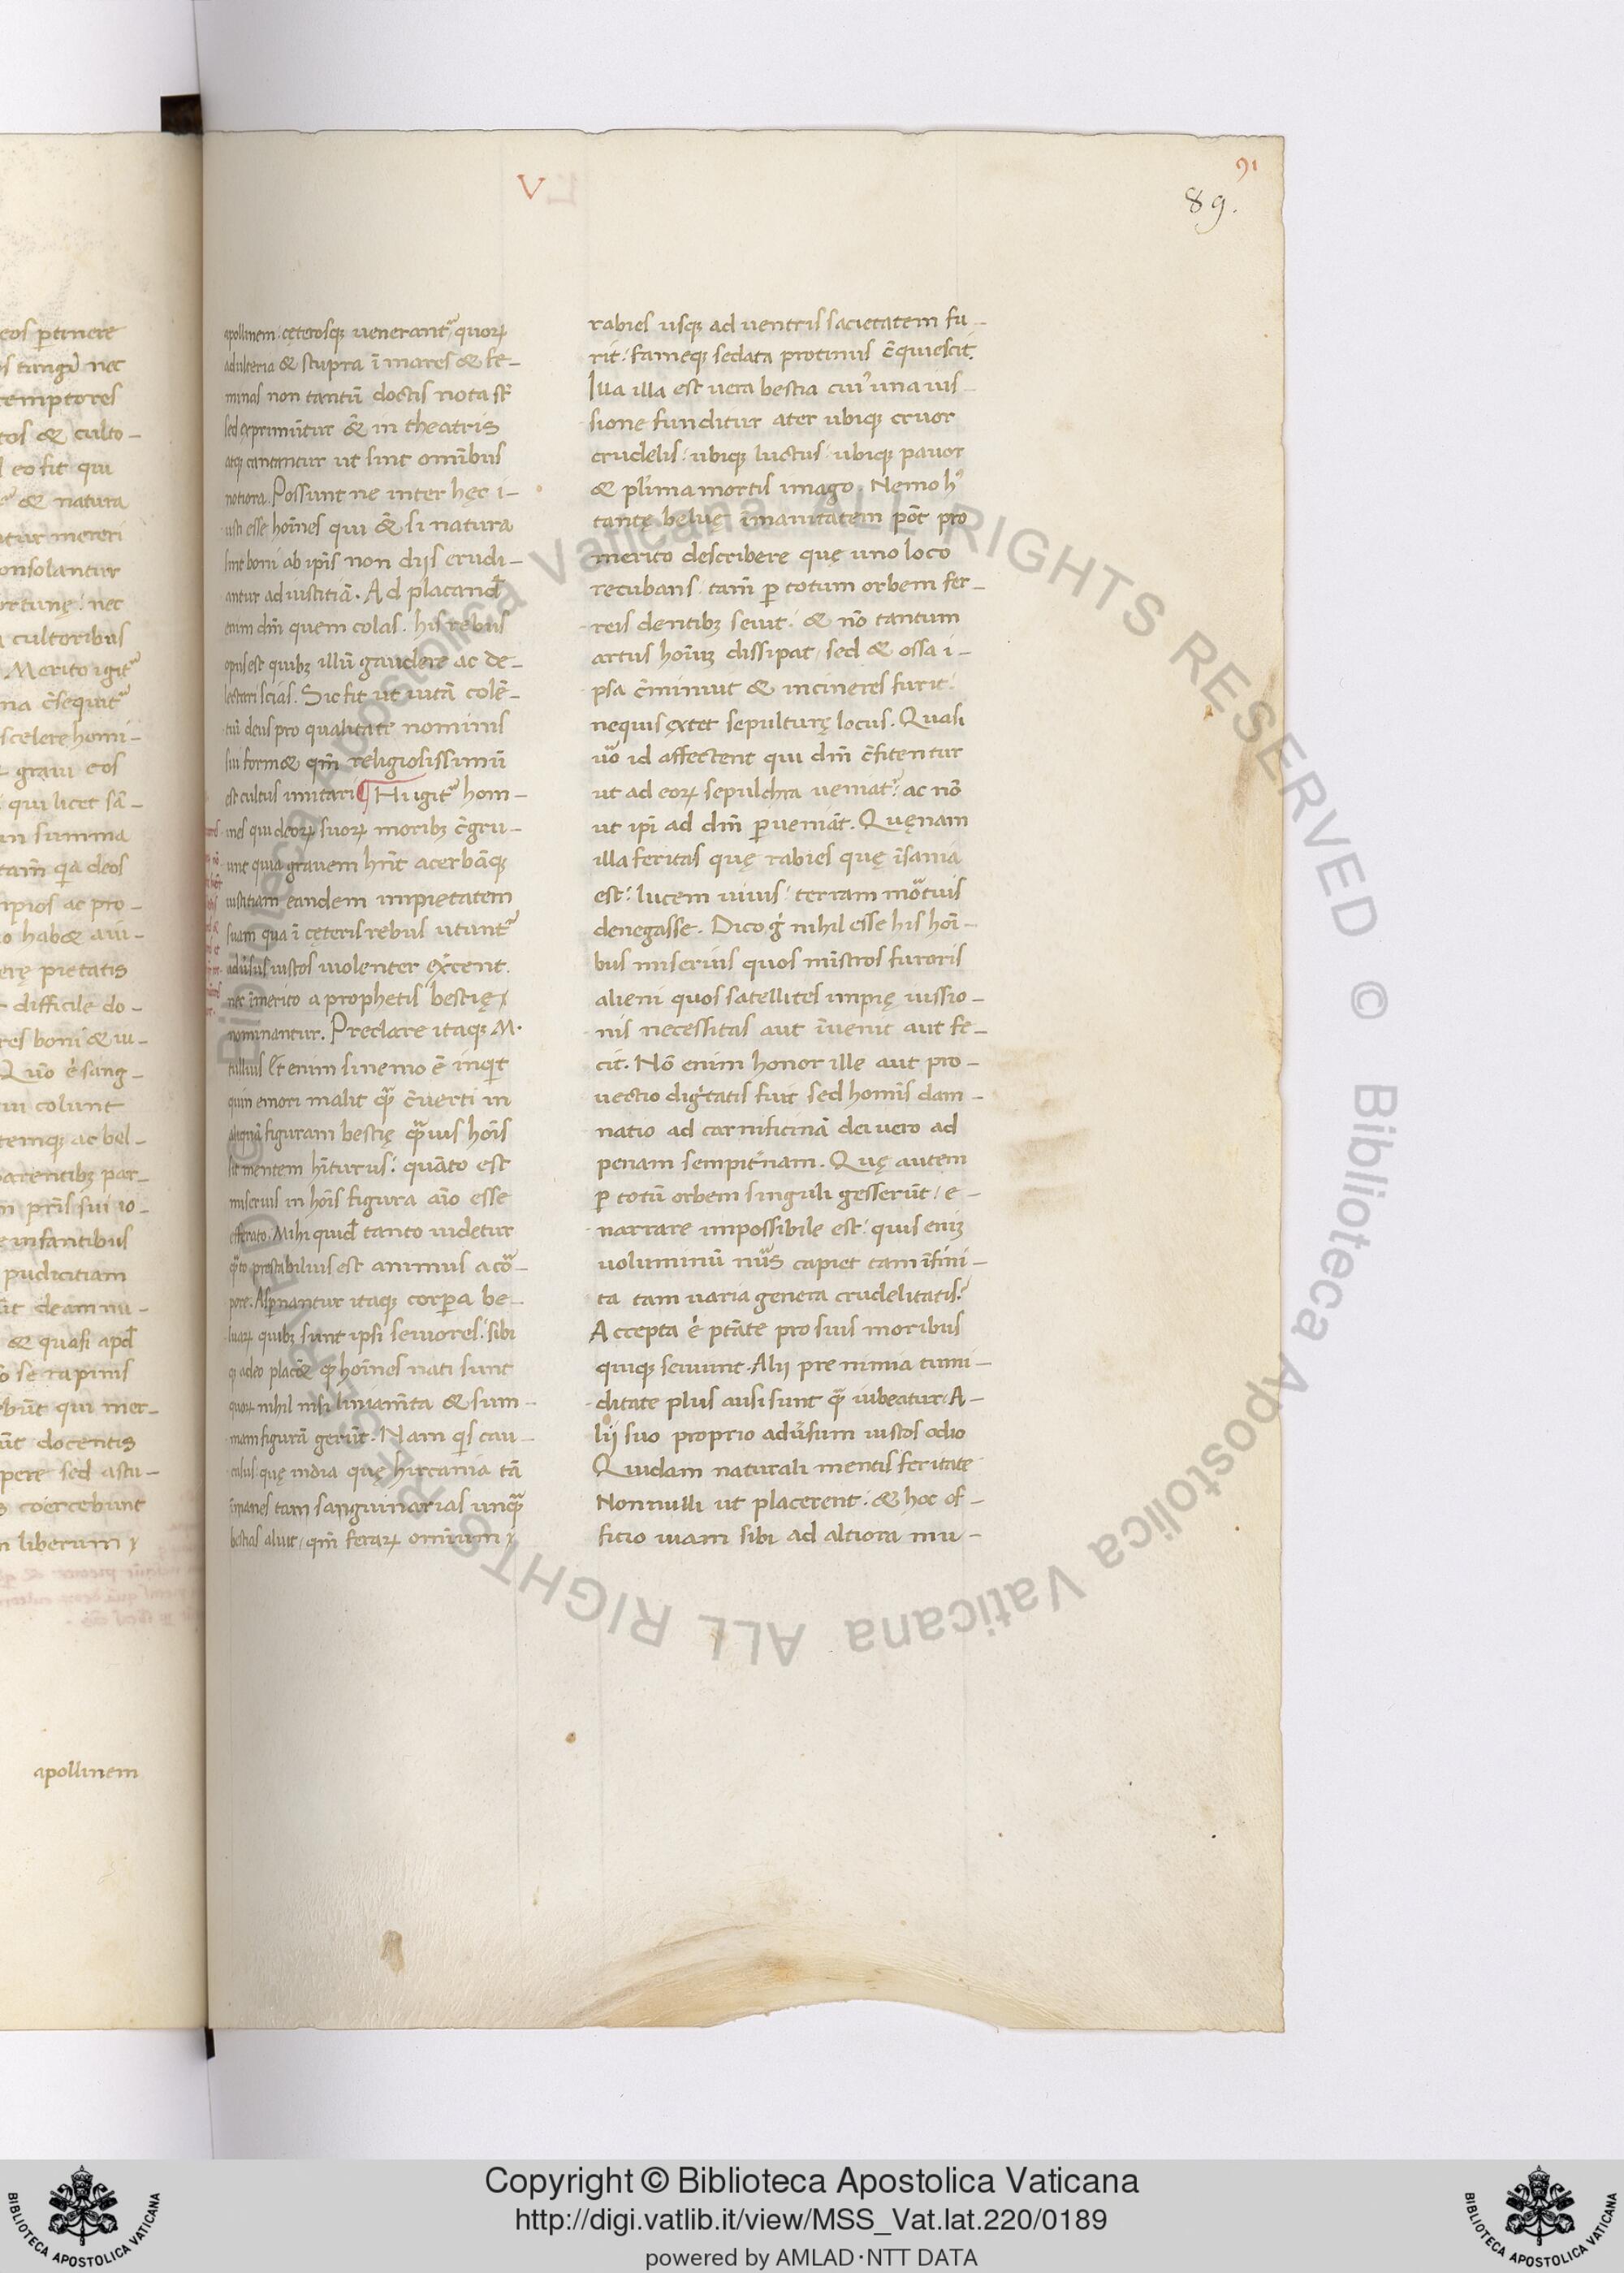 V
91
89.
eos ptinere
s tangi nec
temptores
tos & culto-
l eo fit qui
& natura
tur mereri
onsolantur
rtunę: nec
cultoribus
Merito igit᷑
na c̄sequit᷑
scelere homi-
graui eos
qui licet sā-
in summa
tam̄ qa deos
mpios ac pro-
o hab& aui-
erę pietatis
difficile do-
res boni & iu-
Quō ē sang-
ui colunt
temq; ac bel-
parentibꝫ par-
pris̄ sui io-
infantibus
pudicitiam
deam nu-
& quasi apd̄
se rapinis
būt qui mer-
ūt docentis
pere sed astu-
coercebunt
liberum
apollinem
apollinem: cęterosq; uenerant᷑ quoꝝ
adulteria & stupra ī mares & fe-
minas non tantū doctis nota st̄
sed exprimūtur &̄ in theatris
atq; cantantur ut sint omībus
notiora. Possunt ne inter hęc i-
usti esse hoīnes qui &̄ si natura
sint boni ab ipīs non diis erudi-
antur ad iustitiā. Ad placand̄
enim dm̄ quem colas. his rebus
opus est quibꝫ illū gaudere ac de-
lectari scias. Sic fit ut uitā colē-
tiū deus pro qualitate nominis
sui form& qm̄ religiosissimū
est cultus imitari ¶ Hi igit᷑ hom-
ines qui deoꝝ suoꝝ moribꝫ c̄gru-
unt quia grauem hn̄t acerbāq;
iustitiam eandem impietatem
suam qua ī cęteris rebus utunt᷑
adūsus iustos uiolenter exc̄ent.
nec īmerito a prophetis bestię
nominantur. Preclare itaq; M.
tullius Et enim si nemo ē inqit
quin emori malit qᷓ c̄uerti in
aliquā figuram bestię qᷓuis hoīs
sit mentem hīturus: quāto est
miserius in hoīs figura aīo esse
efferato. Mihi quid̄ tanto uidetur
qᷓto prestabilius est animus a cō-
pore. Aspnantur itaq; corpa be-
luaꝝ quibꝫ sunt ipsi seuiores: sibi
q adeo plac& qd̄ hoīnes nati sunt
quoꝝ nihil nisi liniam̄ta & sum-
mam figurā gerūt. Nam qs cau-
casus: quę india quę hircania tā
īmanes tam sanguinarias unqᷓ
bestias aluit/ qm̄ feraꝝ omnium
rabies usq; ad uentris sacietatem fu-
rit: fameq; sedata protinus c̄quiescit.
Illa illa est uera bestia cuiꝰ una ius-
sione funditur ater ubiq; cruor
crudelis: ubiq; luctus: ubiq; pauor
& pl̄ima mortis imago. Nemo hꝰ
tantę beluę īmanitatem pōt pro
merito describere quę uno loco
recubans: tam̄ p totum orbem fer-
reis dentibꝫ seuit: & nō tantum
artus hoīuꝫ dissipat/ sed & ossa i-
psa c̄minuit & in cineres furit:
nequis extet sepulturę locus. Quasi
uō id affectent qui dm̄ c̄fitentur
ut ad eoꝝ sepulchra ueniat᷑: ac nō
ut ipī ad dm̄ pueniāt. Quęnam
illa feritas quę rabies quę īsania
est: lucem uiuis: terram mōtuis
denegasse. Dico g̊ nihil esse his hoī-
bus miserius quos mīstros furoris
alieni quos satellites impię iussio-
nis necessitas aut īuenit aut fe-
cit. Nō enim honor ille aut pro-
uectio dig̅tatis fuit sed homīs dam-
natio ad carnificinā dei uero ad
penam sempit̄nam. Quę autem
p totū orbem singuli gesserūt/ e-
narrare impossibile est: quis eniꝫ
uoluminū nūs capiet tam īfini-
ta tam uaria genera crudelitatis?
Accepta ē ptāte pro suis moribus
quisq; seuiunt. Alii pre nimia tumi-
ditate plus ausi sunt qᷓ iubeatur. A-
lii suo proprio adūsum iustos odio
Quidam naturali mentis feritate
Nonnulli ut placerent: & hoc of-
ficio uiam sibi ad altiora mu-
Copyright © Biblioteca Apostolica Vaticana
http://digi.vatlib.it/view/MSS_Vat.lat.220/0189
powered by AMLAD·NTT DATA
BIBLIOTECA APOSTOLICA VATICANA
BIBLIOTECA APOSTOLICA VATICANA
© Biblioteca Apostolica Vaticana ALL RIGHTS RESERVED © Biblioteca Apostolica Vaticana ALL RIGHTS RESERVED